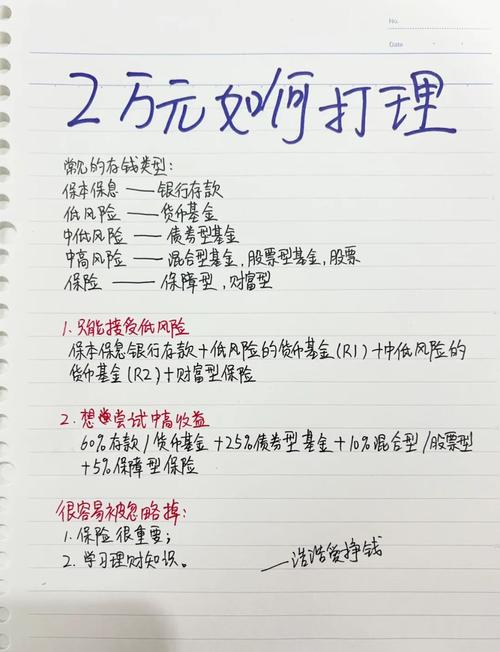 No.
Date
2万元如何打理
常见的存钱类型:
保本保息 —— 银行存款
低风险 —— 货币基金
中低风险 —— 债券型基金
中高风险 —— 混合型基金,股票型基金,股票
保险 —— 保障型,财富型
1.只能接受低风险
保本保息银行存款+低风险的货币基金(R1)+中低风险的
货币基金(R2)+财富型保险
2.想尝试中高收益
60%存款/货币基金+25%债券型基金+10%混合型/股票型
+5%保障型保险
很容易被忽略掉:
1.保险很重要;
2.学习理财知识。
——浩浩爱挣钱